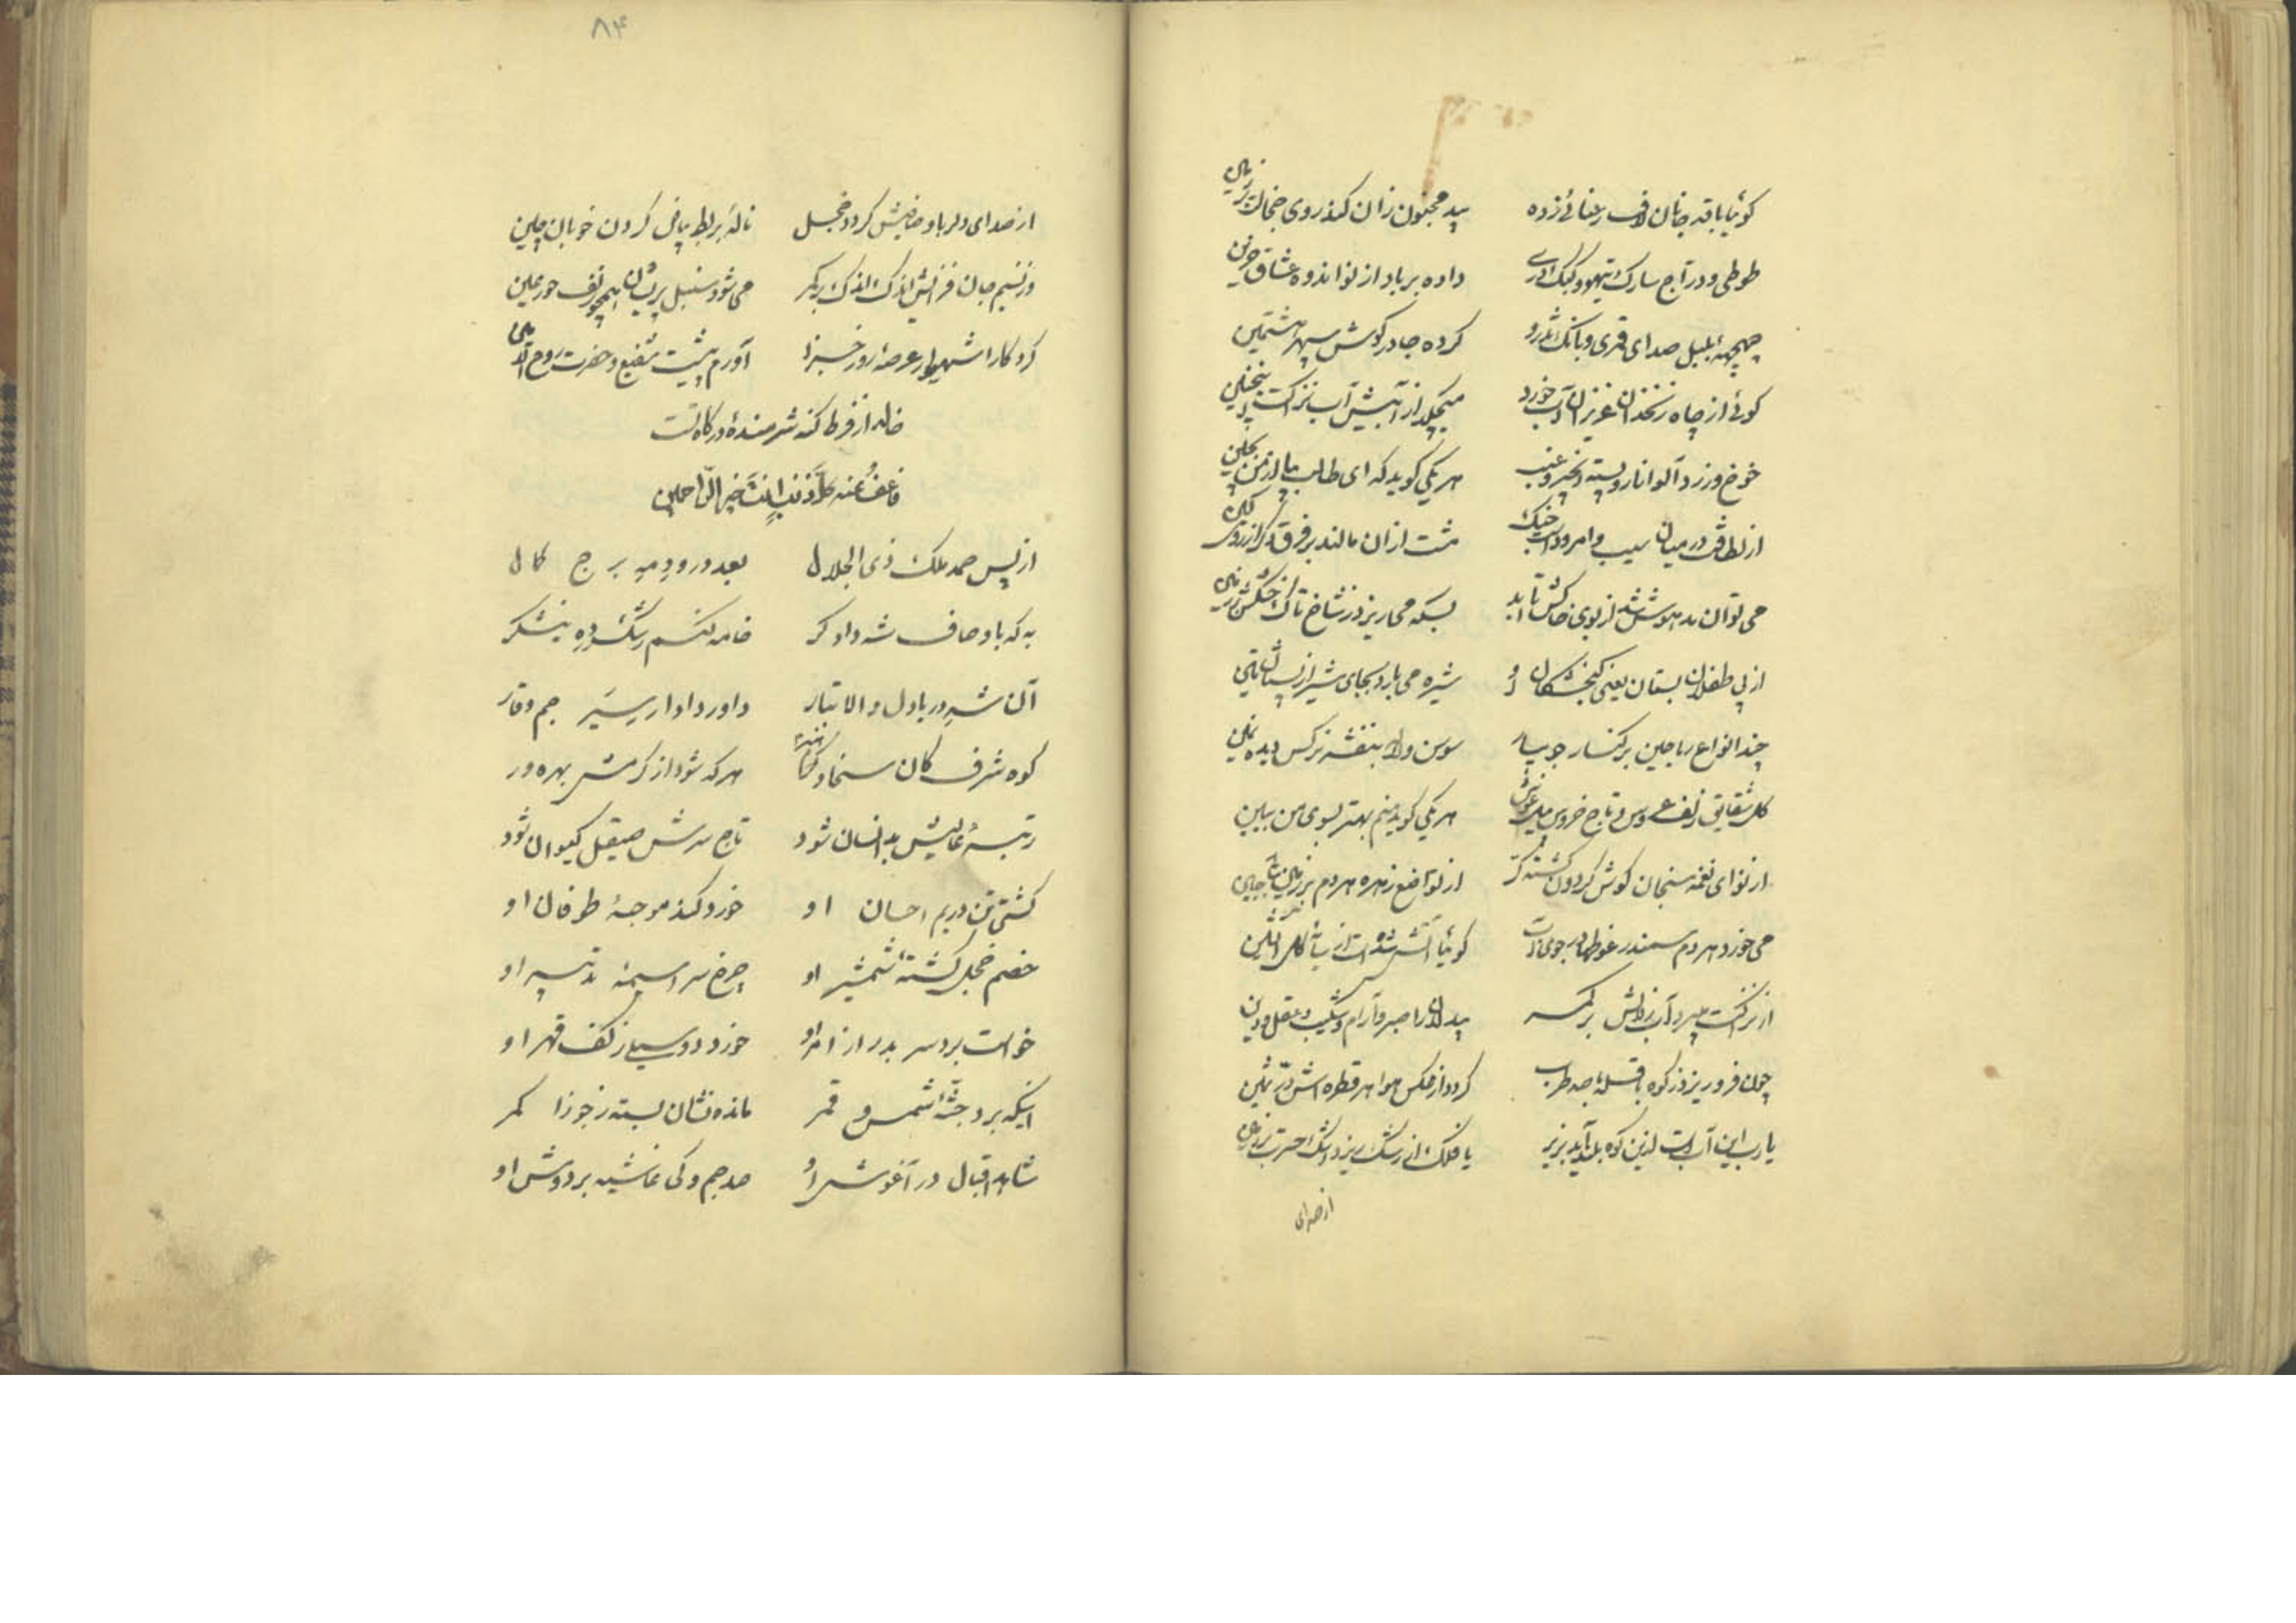 گوئیا با قد جانان لاف رعنائی زده بید مجنون زان کند روی خجالت بر زمین
طوطی و دراج سارک تیهو و کبک دری داده بر باد از نوا اندوه عشاق حزین
چهچهۀ بلبل صدای قمری و بانک تذرو کرده جا در گوش سپهر هشتمین
گوئی از چاه زنخدان عزیزان آب خورد میچکد از آتیش آب نزاکت
خوخ و زرد آلو انار و پسته انجیر و عنب هر یکی گوید که ای طالب بیا از من بچین
از لطافت در میان سیب و امرود است جنگ مشت ازان مالند بر فرق دگر از روی کین
می توان مدهوش شد از بوی خاکش تا ابد بسکه می ریزد ز شاخ تاک
از پی طفلان بستان یعنی گنجشکان او شیره می بارد بجای شیر از پستان تین
چند انواع ریاحین بر کنار جویبار سوسن و لاله بنفشه نرگس دیده
گل شقایق زلف عروس و تاج خروس هر یکی گوید منم بهتر بسوی من ببین
از نوای نغمه سنجان گوش گردون گشته کر از تواضع زهره هر دم بر زمین
می خورد هر دم سمندر غوطها در جوی گوئیا آتش شده است از
از نزاکت میبرد آب زلالش بر کمر بیدلان را صبر و آرام و شکیب و عقل و دین
چون فرو ریزد ز کوه با صد طرب گردد از عکس هوا هر قطره اش درّ ثمین
یا رب این آب است ازین کوه بلند آید بزیر یا فلک از رشک ریزد اشک حسرت بر زمین
از صدای
۸۴
از صدای دلربا و صافیش گردد خجل نالۀ بربط بیاض گردن خوبان چین
وز نسیم جان فزایش اندک اندک بر کمر می شود سنبل پریشان همچو زلف حور عین
کردگارا شهسوار عرصۀ روز جزا آورم پیشت شفیع و حضرت روح الامین
خالد از فرط گنه شرمندۀ درگاه تست
فاعف عنه کلّ ذنب انت خیر الرّاحمین
از پس حمد ملک ذی الجلال بعد درود مه برج کمال
به که باوصاف شه دادگر خامه کنم رشک ده نیشکر
آن شه دریا دل والا تبار داور دادار سیر جم وقار
کوه شرف کان سخا و هنر هر که شود از کرمش بهره ور
رتبۀ عالیش بدانسان شود تاج سرش صیقل کیوان شود
کشتی تن در یم احسان او خورد کند موجۀ طوفان او
خصم خجل گشتۀ شمشیر او چرخ سراسیمۀ تدبیر او
خواست برد سر بدر از امر او خورد دو سیلی ز کف قهر او
اینکه برد جبۀ شمس و قمر مانده نشان بسته ز جوزا کمر
شاهد اقبال در آغوش او صد جم و کی غاشیه بر دوش او